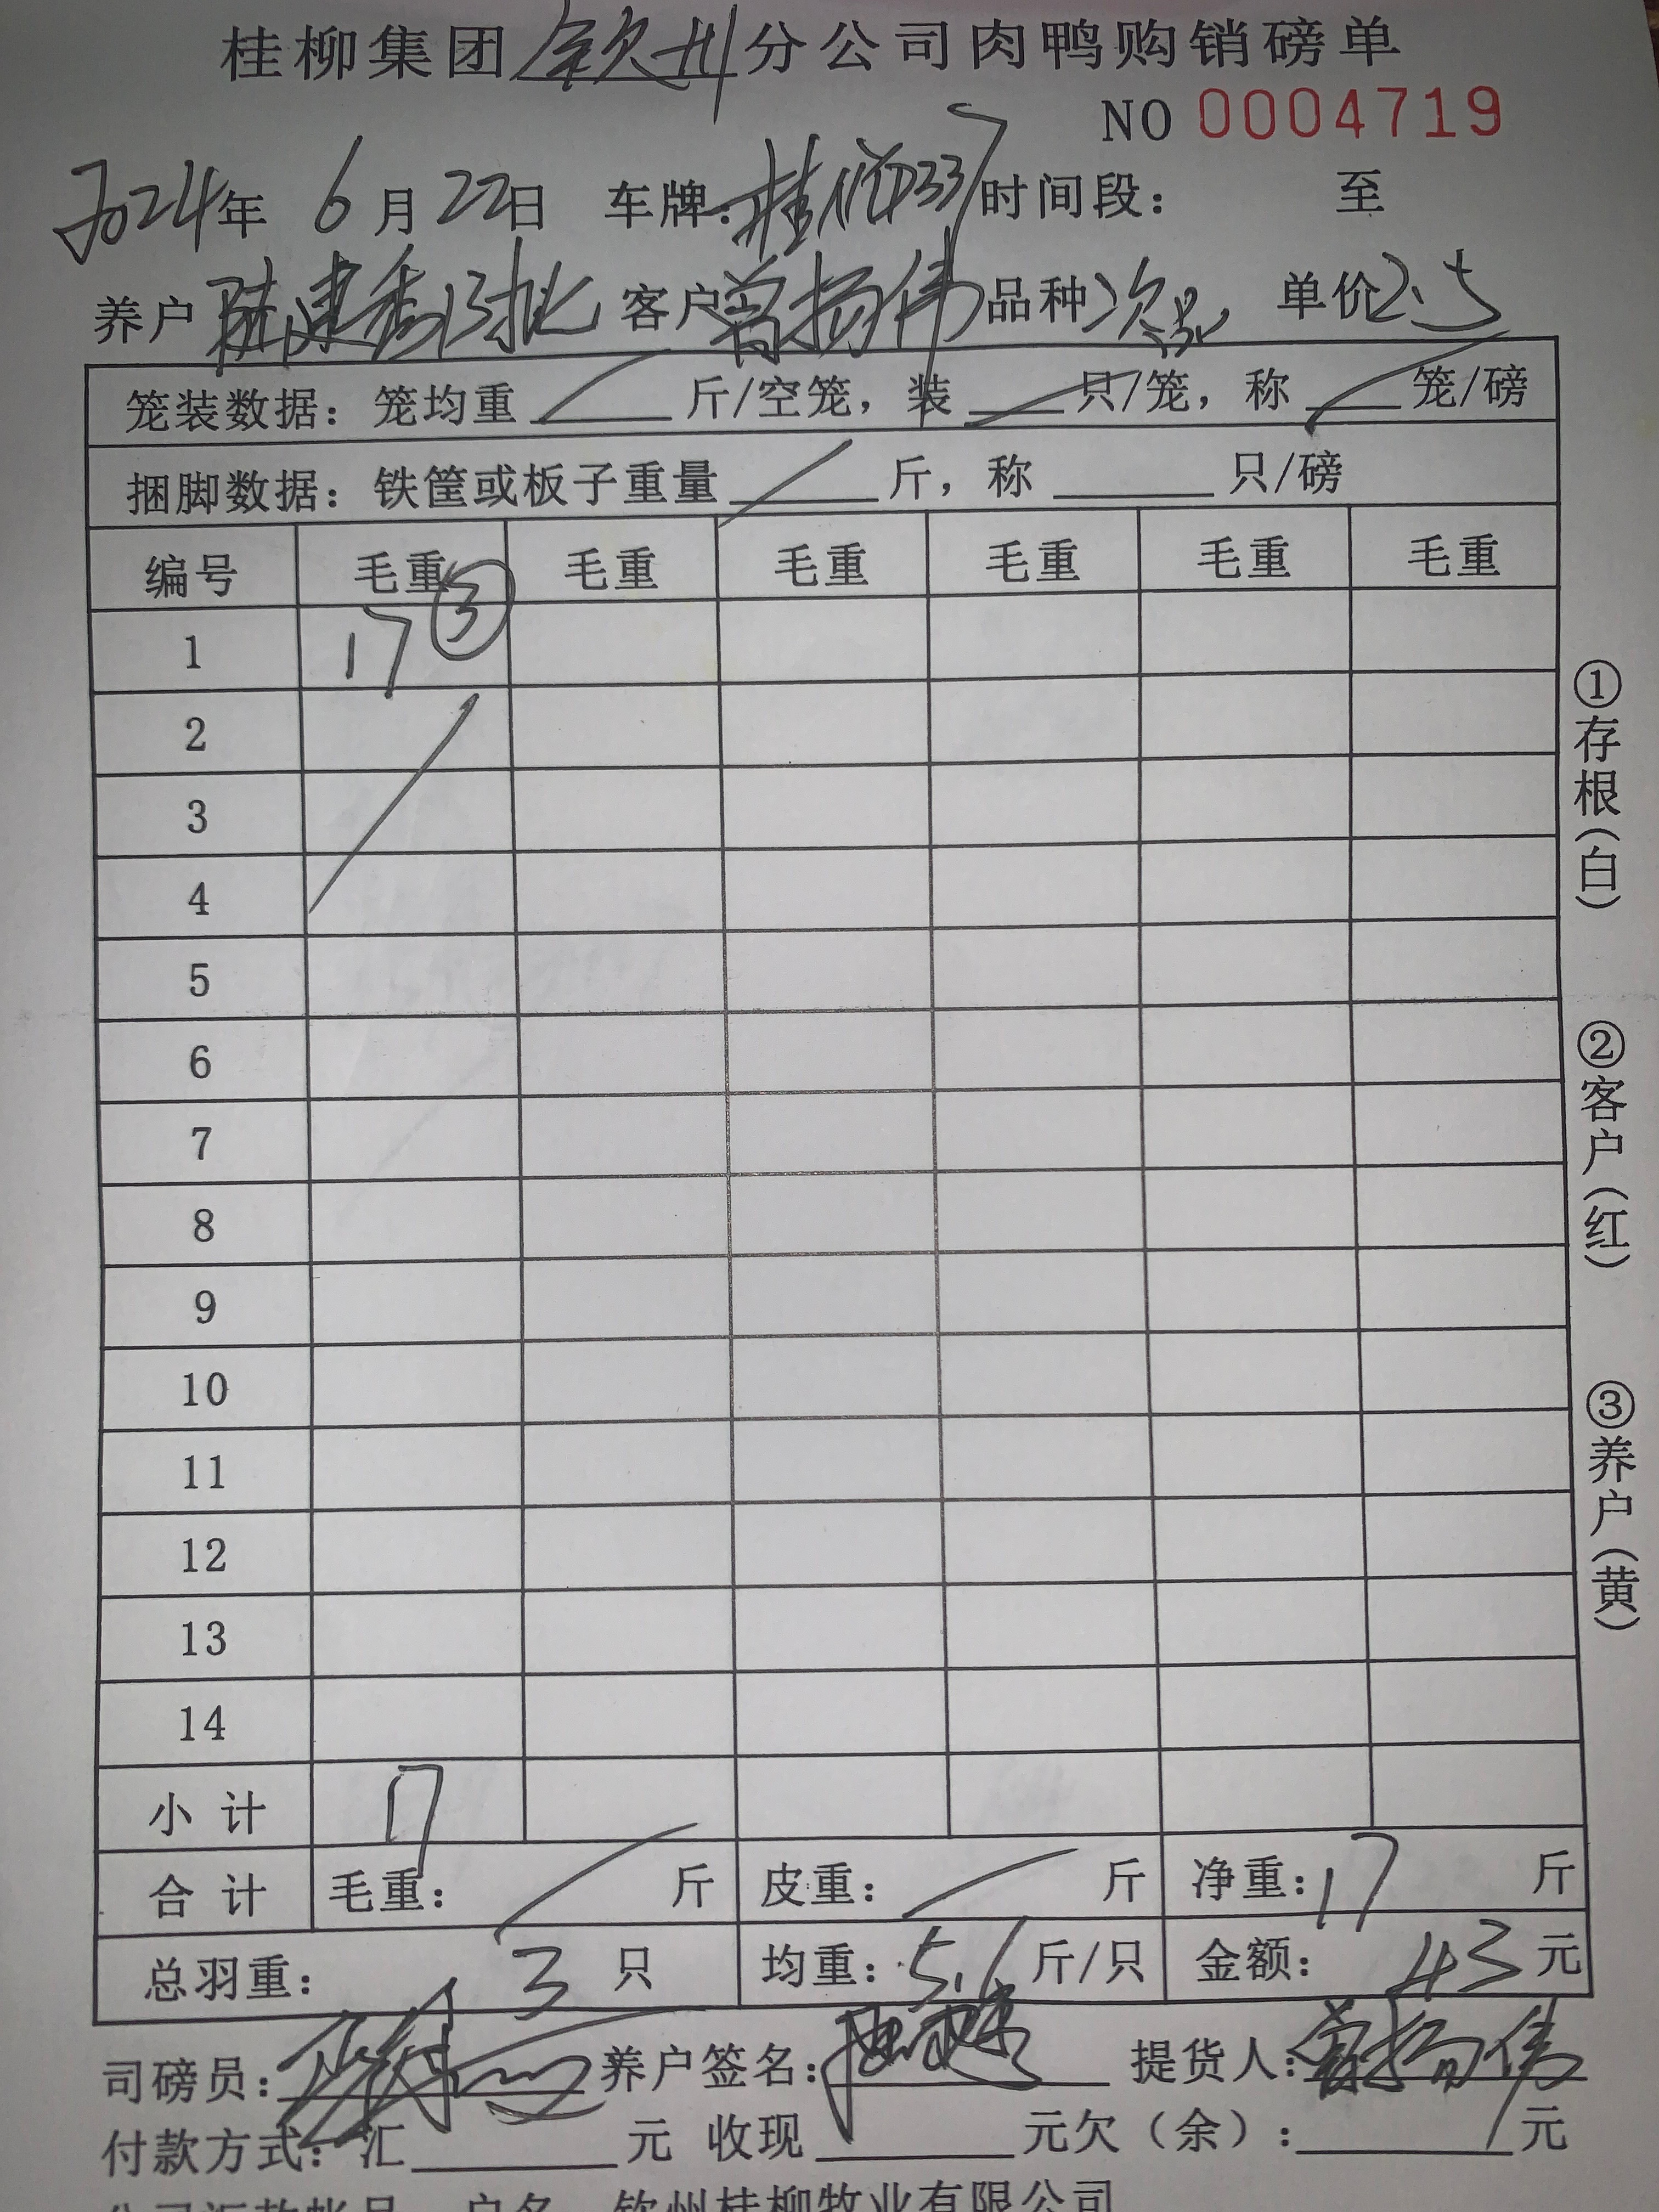 桂柳集团钦州分公司肉鸭购销磅单
NO 0004719
2024年 6月22日 车牌: 时间段: 至
养户 13批 客户曾扬伟 品种次 单价2.5
笼装数据: 笼均重 斤/空笼, 装 只/笼, 称 笼/磅
捆脚数据: 铁筐或板子重量 斤, 称 只/磅
编号 毛重 毛重 毛重 毛重 毛重 毛重
1 17 ③
2
3
4
5
6
7
8
9
10
11
12
13
14
小计 17
合计 毛重: 斤 皮重: 斤 净重: 17 斤
总羽重: 3 只 均重: 5.6 斤/只 金额: 43 元
司磅员: 养户签名: 提货人: 曾扬伟
付款方式: 汇 元 收现 元欠(余): 元
公司汇款帐号 户名 钦州桂柳牧业有限公司
①存根(白)
②客户(红)
③养户(黄)